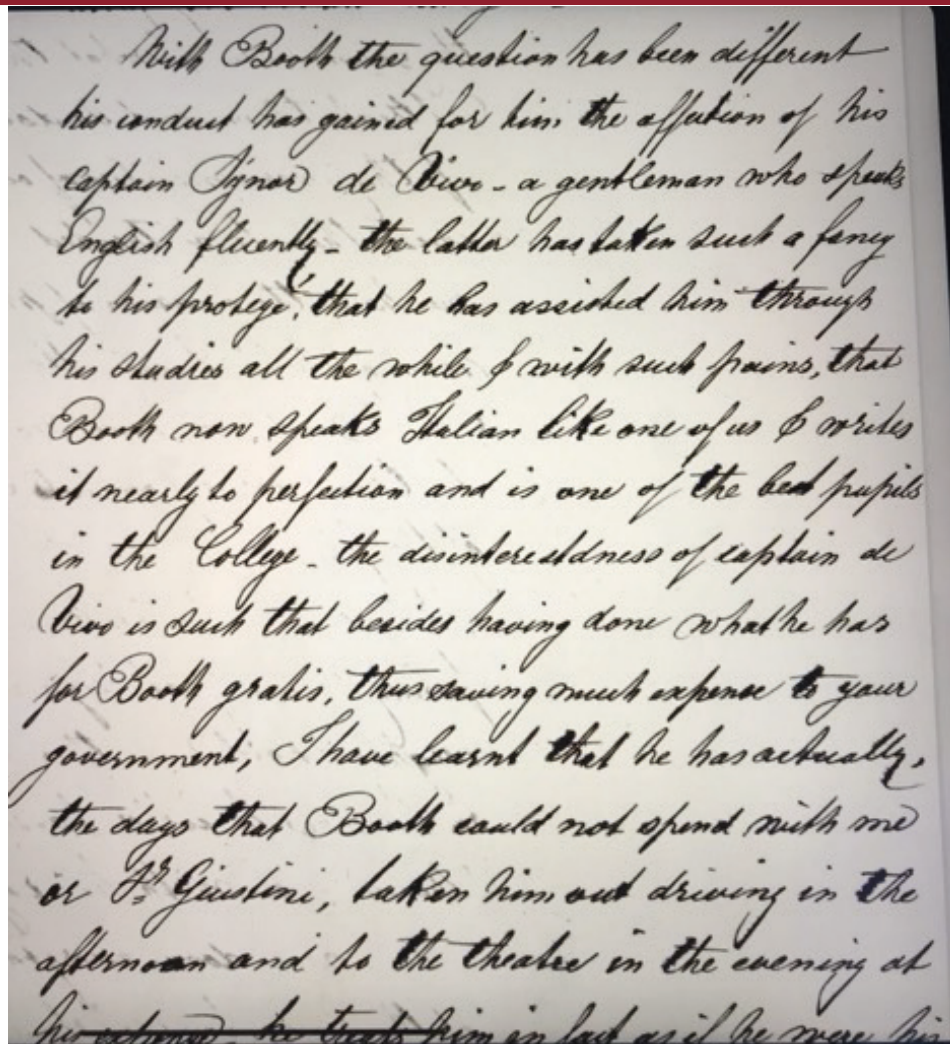 With Booth the question has been different
his conduct has gained for him the affection of his
captain Signor de Vivo - a gentleman who speaks
English fluently - the latter has taken such a fancy
to his protegé, that he has assisted him through
his studies all the while & with such pains, that
Booth now speaks Italian like one of us & writes
it nearly to perfection and is one of the best pupils
in the College - the disinterestdness of captain de
Vivo is such that besides having done what he has
for Booth gratis, thus saving much expense to your
government, I have learnt that he has actually,
the days that Booth could not spend with me
or Sr Giustini, taken him out driving in the
afternoon and to the theatre in the evening at
his expense he treats him in fact as if he were his